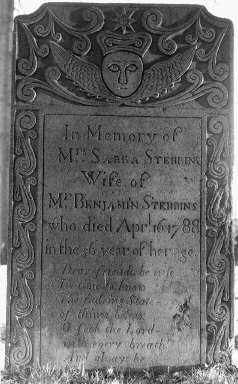 In Memory of
Mrs SABRA STEBBINS
Wife of
Mr BENJAMIN STEBBINS
who died Apr.l 16 1788
in the 56 year of her age.
Dear friends be wise
Tis time to know
The fading State
of things below
O seek the Lord
with every breath
And always be